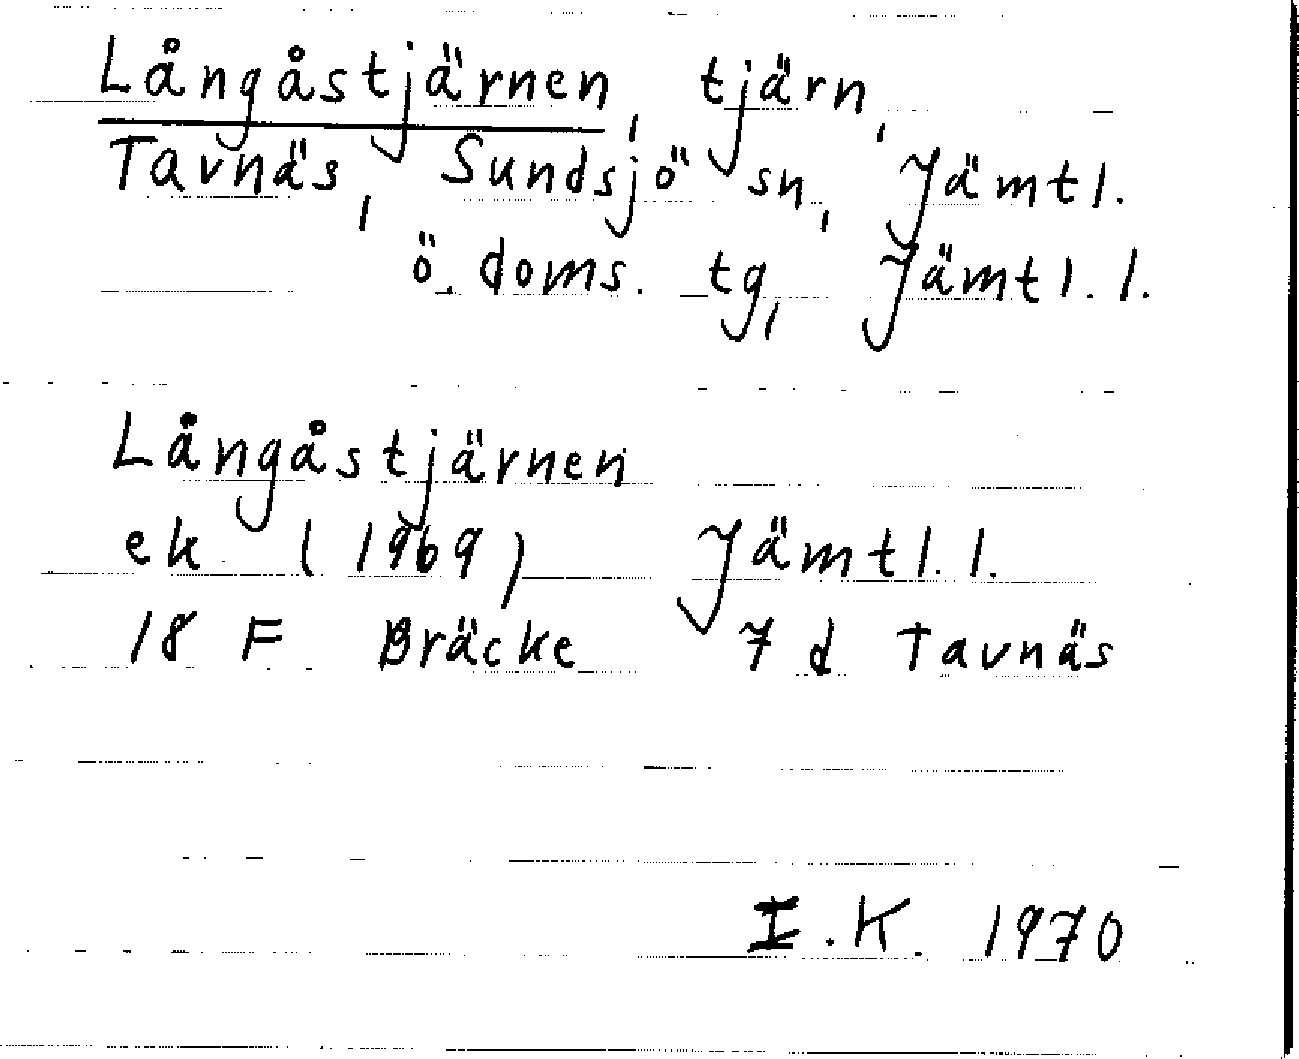 Långåstjärnen, tjärn,
Tavnäs, Sundsjö sn, Jämtl.
ö. doms. tg, Jämtl. l.
Långåstjärnen
ek (1969) Jämtl. l.
18 F Bräcke 7 d Tavnäs
I. K. 1970